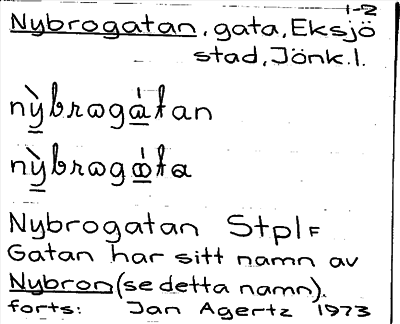 1-2
Nybrogatan, gata, Eksjö
stad, Jönk. l.
nỳ̲brωgá̲tan
nỳ̲brωgώ̲ta
Nybrogatan StplF
Gatan har sitt namn av
Nybron (se detta namn).
forts: Jan Agertz 1973